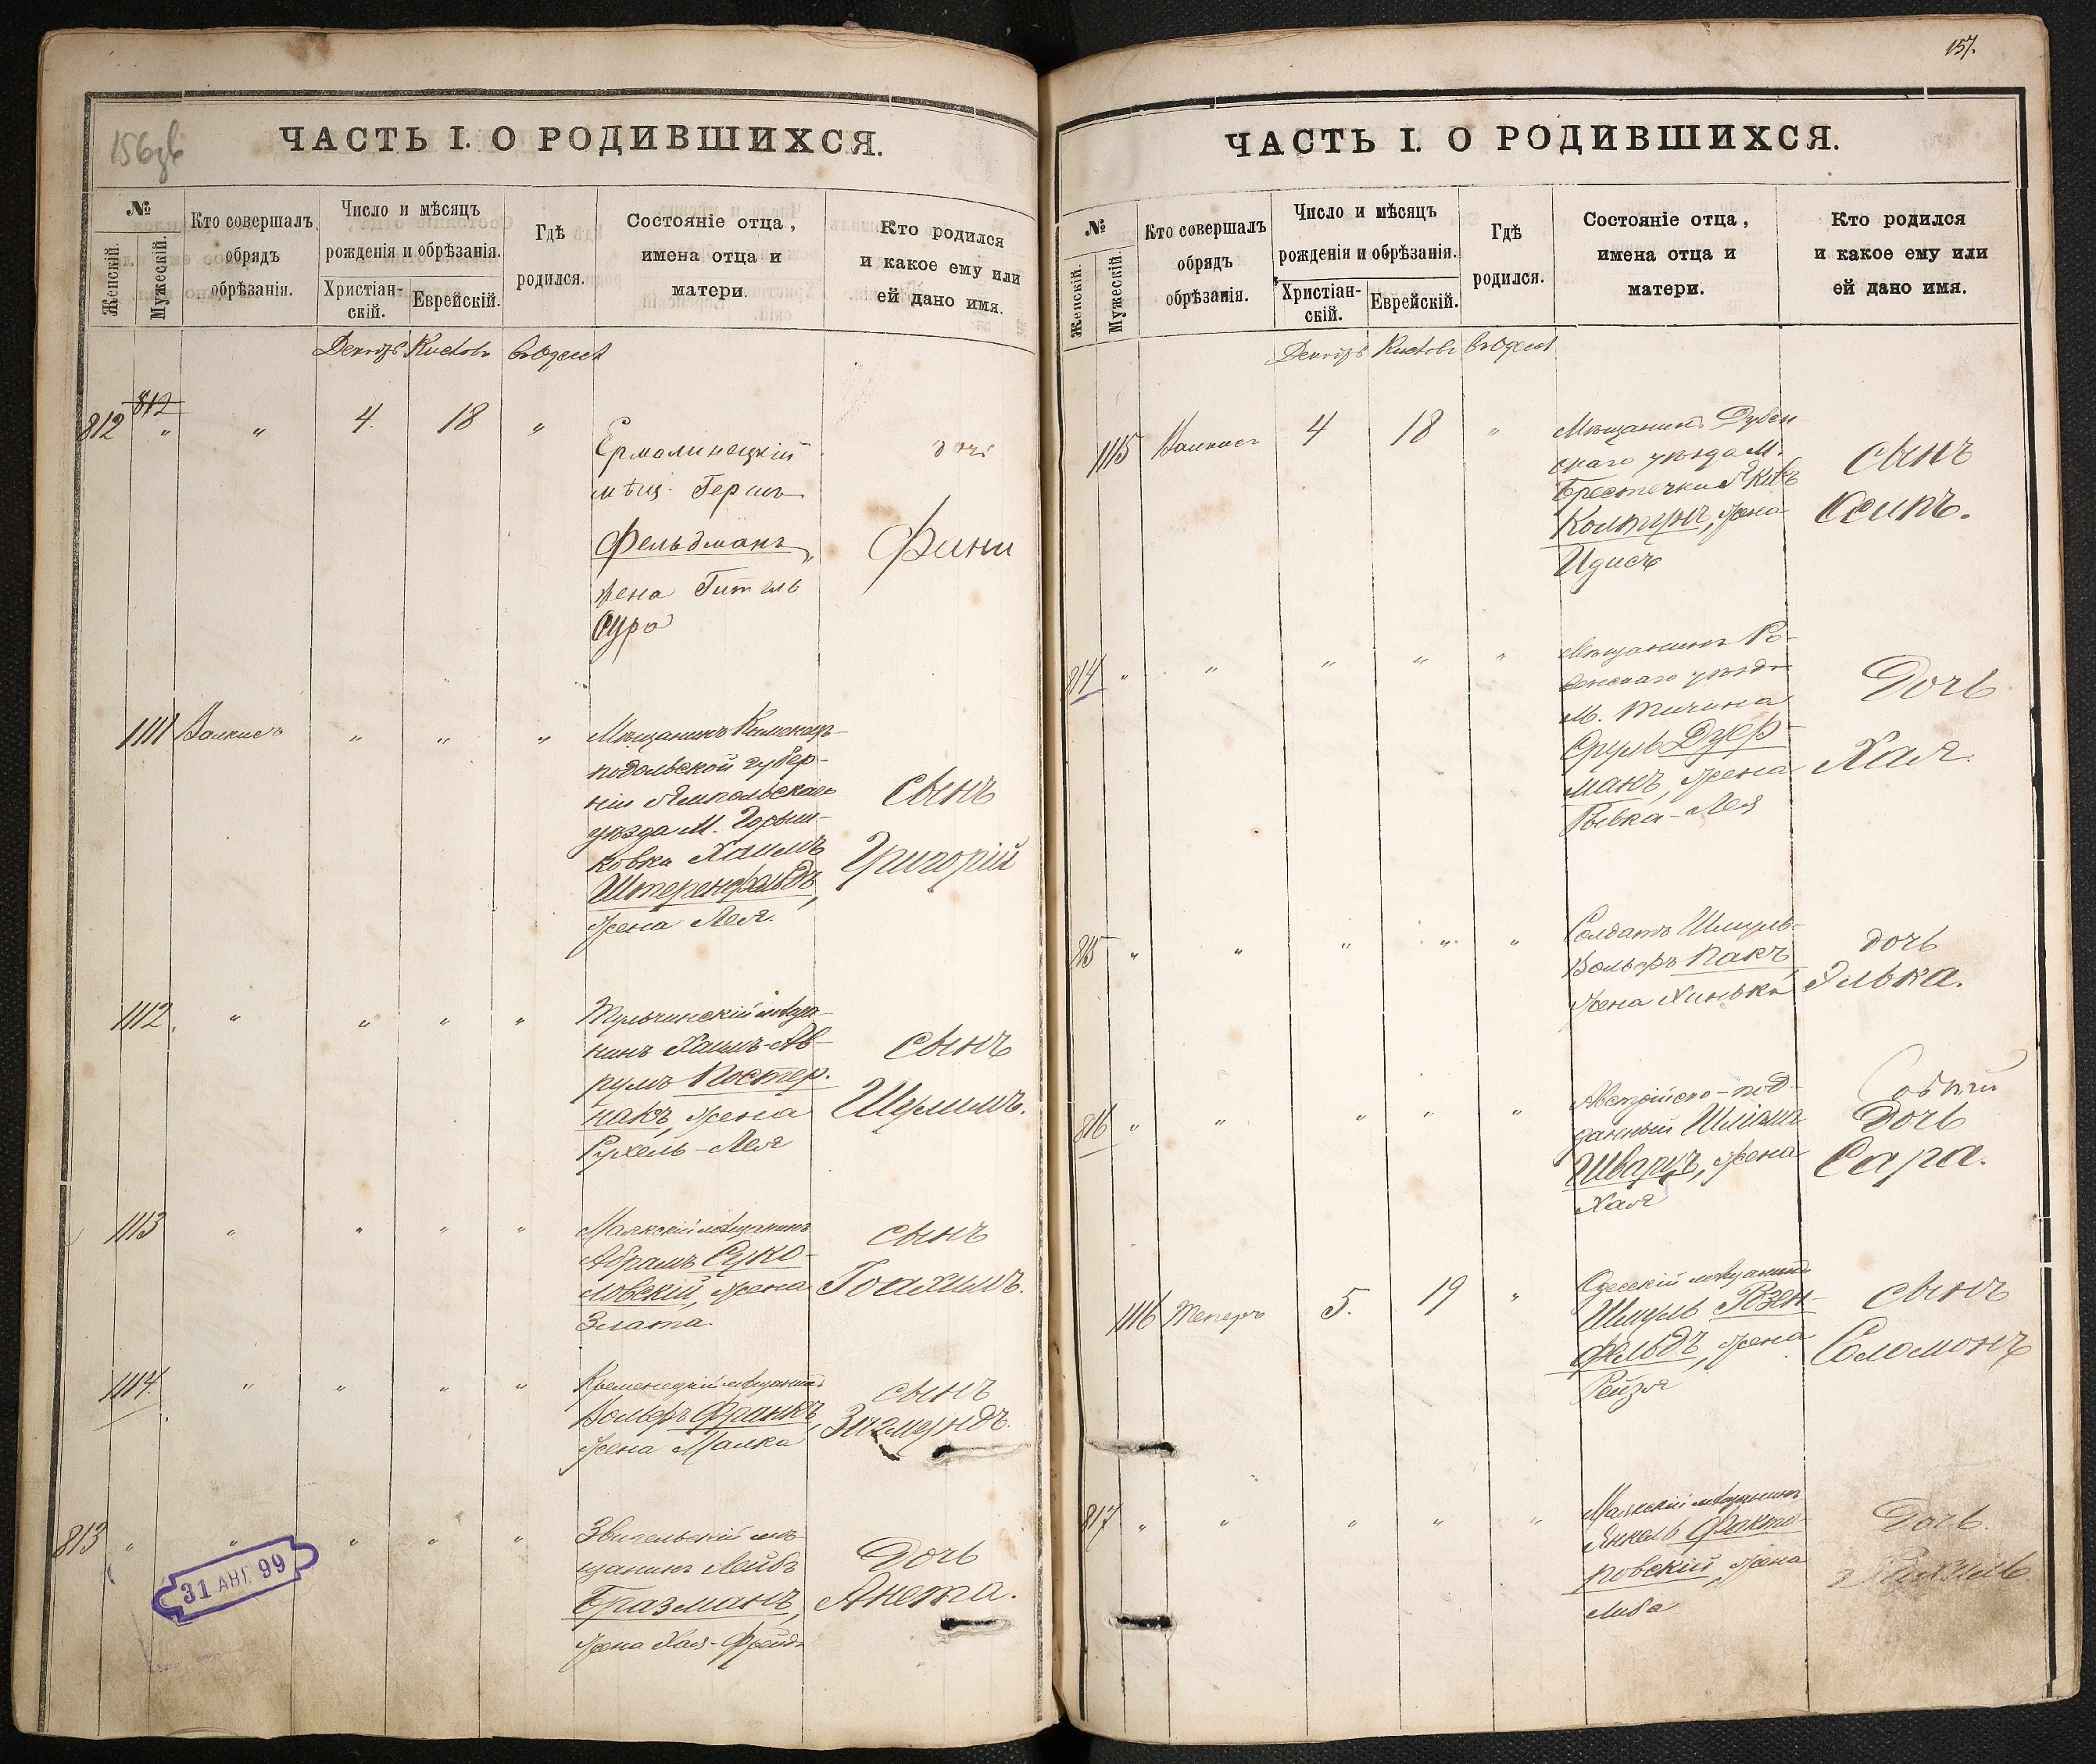 156об
ЧАСТЬ I. О РОДИВШИХСЯ.
№
Женскій.
Мужескій.
Кто совершалъ
обрядъ
обрѣзанія.
Число и мѣсяцъ
рожденія и обрѣзанія.
Христіан-
скій.
Еврейскій.
Гдѣ
родился.
Состояніе отца,
имена отца и
матери.
Кто родился
и какое ему или
ей дано имя.
Декабр Кислов въ Одессѣ
812 812 " " 4. 18 "
Ермолинецкій
мѣщ. Гершъ
Фельдманъ,
жена Гитель
Сура
дочь
Фини
1111 " " "
Мѣщанинъ Каменецъ-
подольской губер-
ніи Ямпольскаго
уѣзда М.
ковки Хаимъ
Штеренфельдъ,
жена Лея.
сынъ
Григорій
1112 " " " "
Тульчинскій мѣща-
нинъ Хаимъ-Ав-
румъ Постер-
накъ, жена
Рухель-Лея
сынъ
1113 " " " "
Маякскій мѣщанинъ
Абрамъ Суко-
ловскій, жена
Злата.
сынъ
Іоахимъ.
1114. " " " "
Кременецкій мѣщанинъ
Вольфъ Франкъ,
жена Малка
сынъ
Зигмундъ.
813 " " " " "
Звягельскій мѣ-
щанинъ Лейбъ
Бразманъ,
жена Хая-Фрейда
Дочь
Анета.
31 АВГ. 99
157.
ЧАСТЬ I. О РОДИВШИХСЯ.
№
Женскій.
Мужескій.
Кто совершалъ
обрядъ
обрѣзанія.
Число и мѣсяцъ
рожденія и обрѣзанія.
Христіан-
скій.
Еврейскій.
Гдѣ
родился.
Состояніе отца,
имена отца и
матери.
Кто родился
и какое ему или
ей дано имя.
Декабр Кислов въ Одессѣ
1115 4 18 "
Мѣщанинъ Дубен
скаго уѣзда М.
Берестечки
жена
Идись
сынъ
Осипъ.
814 " " " " "
Мѣщанинъ Ро-
венскаго уѣзда
М. Тучина
Сруль Дзер-
манъ, жена
Ривка-Лея
Дочь
Хая.
815 " " " " "
Солдатъ Шмуль-
Вольфъ Пакъ
жена Хинька
дочь
Элька.
816 " " " " "
Австрійско-под-
данный Шліома
Шварцъ, жена
Хая
Дочь
Сара.
1116 5. 19 "
Одесскій мѣщанинъ
Шмуль Розен-
фельдъ, жена
Рейзя
сынъ
Соломонъ
817 " " " " "
Маякскій мѣщанинъ
Янкель Факто-
ровскій, жена
Либа
Дочь.
Рахиль